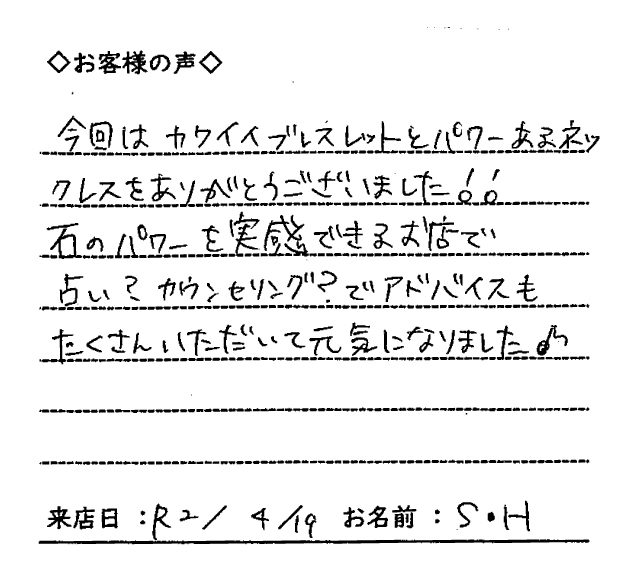 ◇お客様の声◇
今回は カワイイブレスレットとパワーあるネッ
クレスをありがとうございました!!
石のパワーを実感できるお店で
占い? カウンセリング?でアドバイスも
たくさんいただいて元気になりました♪
来店日:R2/ 4/19 お名前:S・H